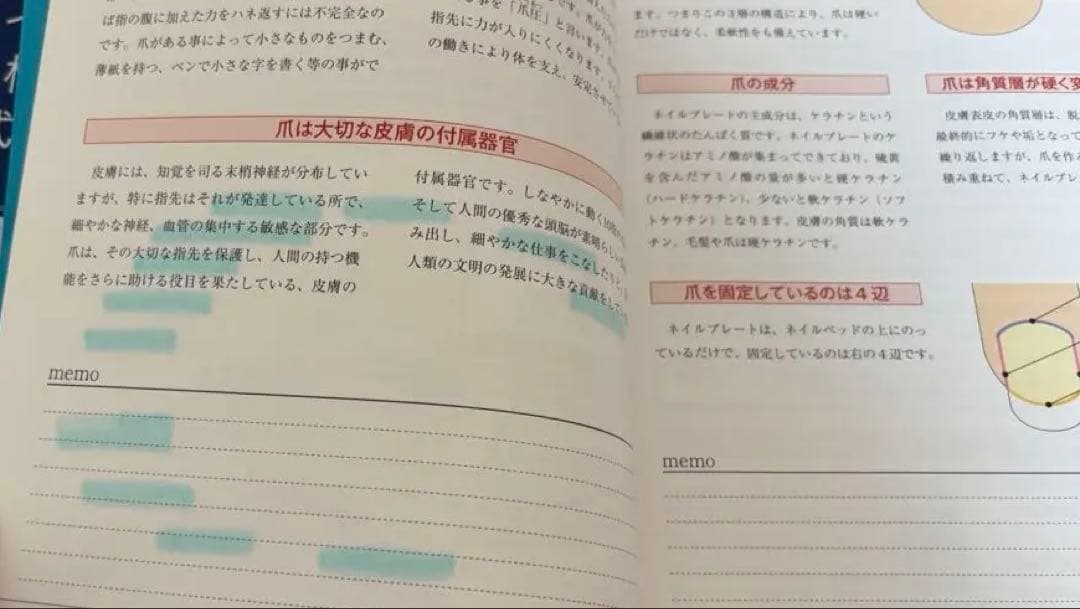 ば指の腹に加えた力をハネ返すには不完全なの
です。爪がある事によって小さなものをつまむ、
薄紙を持つ、ペンで小さな字を書く等の事がで
事を「爪圧」と言います。
指先に力が入りにくくなります。
の働きにより体を支え、安定させて
爪は大切な皮膚の付属器官
皮膚には、知覚を司る末梢神経が分布してい
ますが、特に指先はそれが発達している所で、
細やかな神経、血管の集中する敏感な部分です。
爪は、その大切な指先を保護し、人間の持つ機
能をさらに助ける役目を果たしている、皮膚の
付属器官です。しなやかに動く10本の
そして人間の優秀な頭脳が素晴らしい
み出し、細やかな仕事をこなしたり
人類の文明の発展に大きな貢献をして
memo
ます。つまりこの3層の構造により、爪は硬い
だけではなく、柔軟性をも備えています。
爪の成分
ネイルプレートの主成分は、ケラチンという
繊維状のたんぱく質です。ネイルプレートのケ
ラチンはアミノ酸が集まってできており、硫黄
を含んだアミノ酸の量が多いと硬ケラチン
(ハードケラチン)、少ないと軟ケラチン(ソフ
トケラチン)となります。皮膚の角質は軟ケラ
チン、毛髪や爪は硬ケラチンです。
爪を固定しているのは4辺
ネイルプレートは、ネイルベッドの上にのっ
ているだけで、固定しているのは右の4辺です。
爪は角質層が硬く変
皮膚表皮の角質層は、脱
最終的にフケや垢となって
繰り返しますが、爪を作
積み重ねて、ネイルプレ
memo